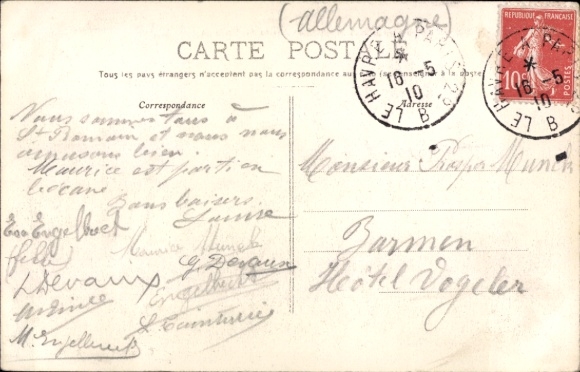 (Allemagne)
CARTE POSTALE
Tous les pays étrangers n'acceptent pas la correspondance au
RÉPUBLIQUE FRANÇAISE
10
POSTES
LE HAVRE
16 - 5
10
B
LE HAVRE
16 - 5
10
B
Correspondance
Adresse
Nous sommes tous à
St Romain et nous nous
amusons bien.
Maurice est parti en
Bons baisers.
Louise
Eva Engelbert
L Devaux
Maurice Munch
G. Devaux
Engelbert
M. Engelbert
Monsieur Prosper Munch
Barmen
Hôtel Vogeler